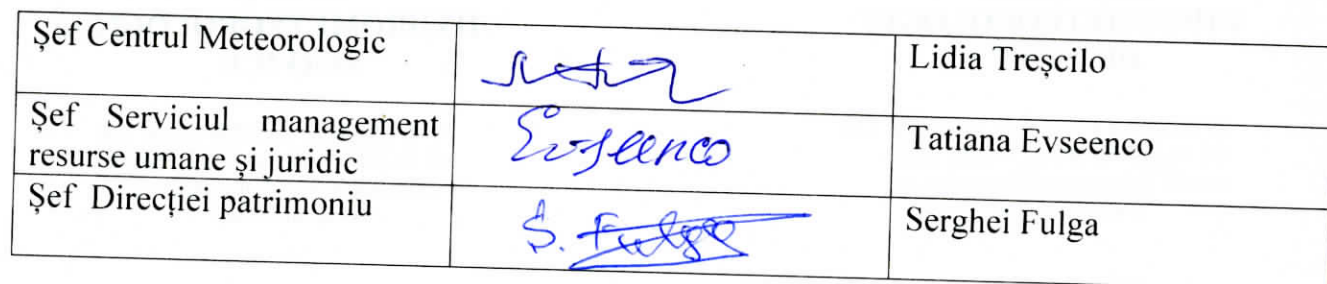 Șef Centrul Meteorologic
Lidia Treșcilo
Șef Serviciul management
resurse umane și juridic
Evseenco
Tatiana Evseenco
Șef Direcției patrimoniu
S. Fulga
Serghei Fulga